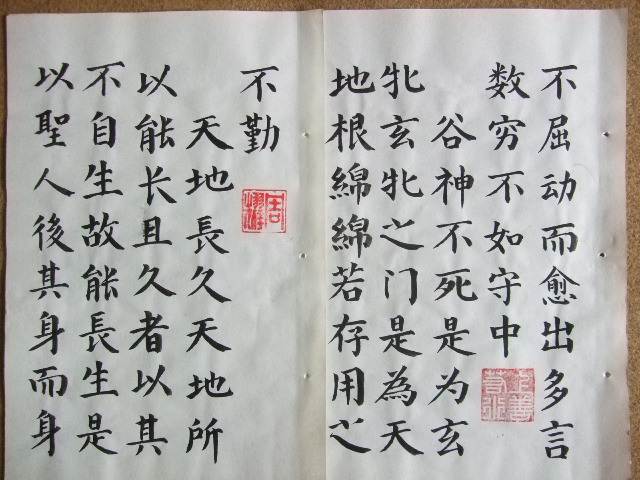 不屈动而愈出多言
数穷不如守中
上善若水
谷神不死是为玄
牝玄牝之门是為天
地根綿綿若存用之
不勤
天地長久天地所
以能长且久者以其
不自生故能長生是
以聖人後其身而身